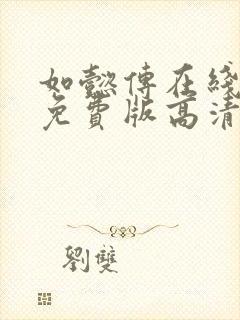 如懿傅在綫
免費版高清
劉雙